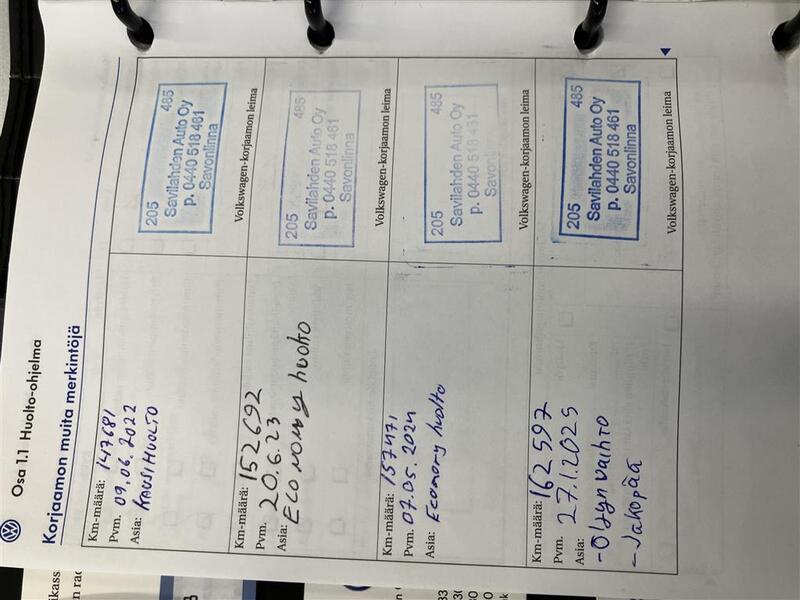 Osa 1.1 Huolto-ohjelma
Korjaamon muita merkintöjä
Km-määrä: 147681
Pvm. 09.06.2022
Asia: KAUSIHUOLTO
205 485
Savilahden Auto Oy
p. 0440 518 461
Savonlinna
Volkswagen-korjaamon leima
Km-määrä: 152692
Pvm. 20.6.23
Asia: Economy huolto
205 485
Savilahden Auto Oy
p. 0440 518 461
Savonlinna
Volkswagen-korjaamon leima
Km-määrä: 157471
Pvm. 07.05.2024
Asia: Economy huolto
205 485
Savilahden Auto Oy
p. 0440 518 461
Savonlinna
Volkswagen-korjaamon leima
Km-määrä: 162597
Pvm. 27.1.2025
Asia:
- Öljyn vaihto
- Jakopää
205 485
Savilahden Auto Oy
p. 0440 518 461
Savonlinna
Volkswagen-korjaamon leima